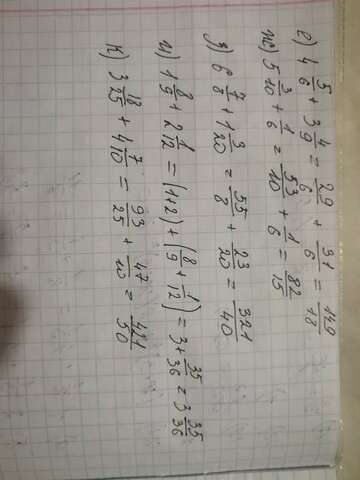 е) 4 5/6 + 3 4/9 = 29/6 + 31/6 = 149/18
ж) 5 3/10 + 1/6 = 53/10 + 1/6 = 82/15
з) 6 7/8 + 1 3/20 = 55/8 + 23/20 = 321/40
и) 1 8/9 + 2 1/12 = (1+2) + (8/9 + 1/12) = 3 + 35/36 = 3 35/36
к) 3 18/25 + 4 7/10 = 93/25 + 47/10 = 421/50